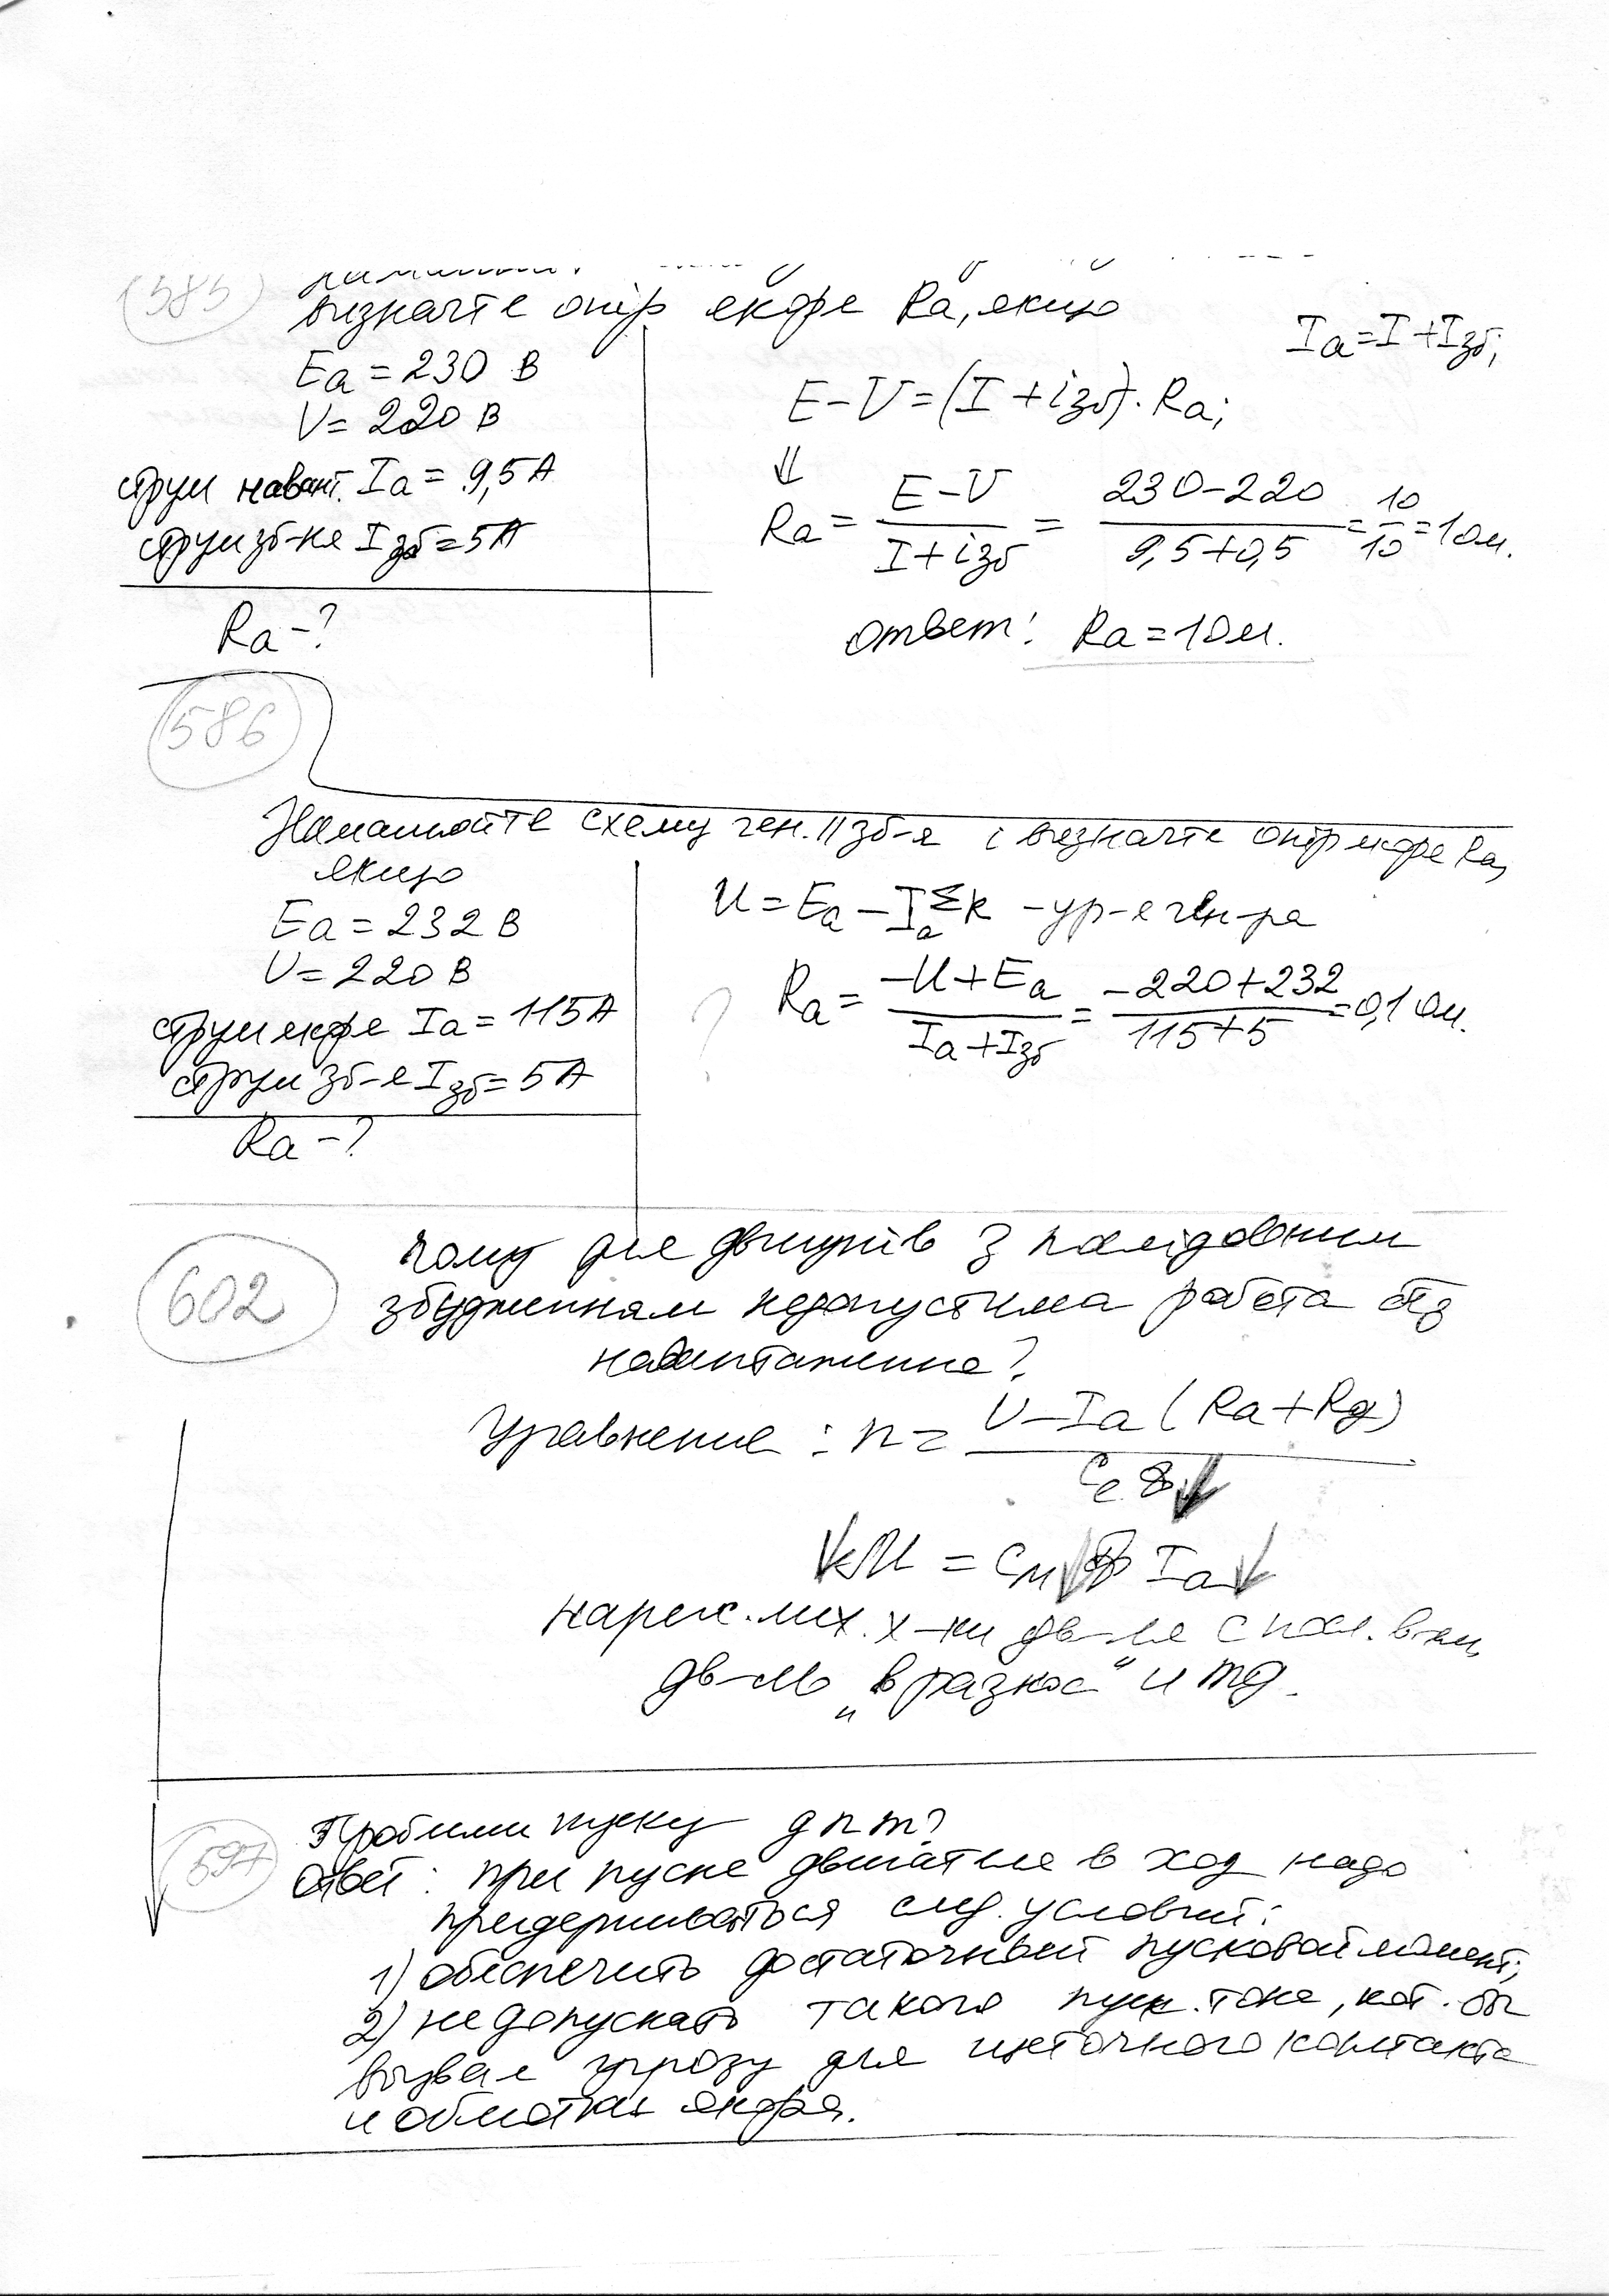 585
визначте опір якоря Ra, якщо
Ia = I + Iзб;
Ea = 230 В
U = 220 В
струм навант. Ia = 9,5 А
струм зб-ня Iзб = 5А
Ra - ?
E - U = (I + iзб) · Ra;
⇓
Ra = (E - U) / (I + iзб) = (230 - 220) / (9,5 + 0,5) = 10/10 = 1 Ом.
ответ: Ra = 1 Ом.
586
Намалюйте схему ген. || зб-я і визначте опір якоря Ra,
якщо
Ea = 232 В
U = 220 В
струм якоря Ia = 115А
струм зб-я Iзб = 5А
Ra - ?
U = Ea - Ia ΣR - ур-е ген-ра
? Ra = (-U + Ea) / (Ia + Iзб) = (-220 + 232) / (115 + 5) = 0,1 Ом.
602
Чому для двигунів з послідовним
збудженням недопустима работа без
навантаження?
Уравнение: n = (U - Ia (Ra + Rд)) / (Ce Ф↓)
↓M = Cм ↓Ф Ia↓
мех. х-ки дв-ля с посл. в-ем,
дв-ль „в разнос“ и тд.
597
Проблеми пуску дпт?
Ответ: при пуске двигателя в ход надо
придерживаться след. условий:
1) обеспечить достаточный пусковой момент;
2) не допускать такого пуск. тока, кот. бы
вызвал угрозу для щеточного контакта
и обмотки якоря.